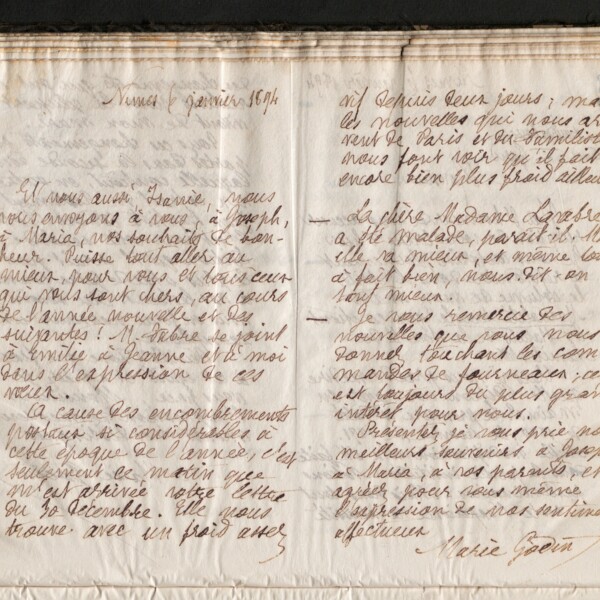 Nimes 6 janvier 1894
Et nous aussi, Isanie, nous
vous envoyons à vous, à Joseph,
à Maria, nos souhaits de bon-
heur. Puisse tout aller au
mieux pour vous et tous ceux
qui vous sont chers, au cours
de l'année nouvelle et des
suivantes ! M. Fabre se joint
à Emilie à Jeanne et à moi
dans l'expression de ces
vœux.
La cause des encombrements
postaux si considérables à
cette époque de l'année, c'est
seulement ce matin que
m'est arrivée votre lettre
du 30 décembre. Elle nous
trouve avec un froid assez
vif depuis deux jours ; ma
les nouvelles qui nous ar
vent de Paris et du Familist
nous font voir qu'il fait
encore bien plus froid ailleu
— La chère Madame
a été malade, paraît il. M
elle va mieux, et même to
à fait bien, nous dit-on
tout mieux.
— Je vous remercie des
nouvelles que vous nous
donnez touchant les com
mandes de fourneaux ; ce
est toujours du plus gran
intérêt pour nous.
Présentez, je vous prie no
meilleurs souvenirs à Josep
à Maria, à vos parents, et
agréez pour vous même
l'expression de nos sentime
affectueux
Marie Godin